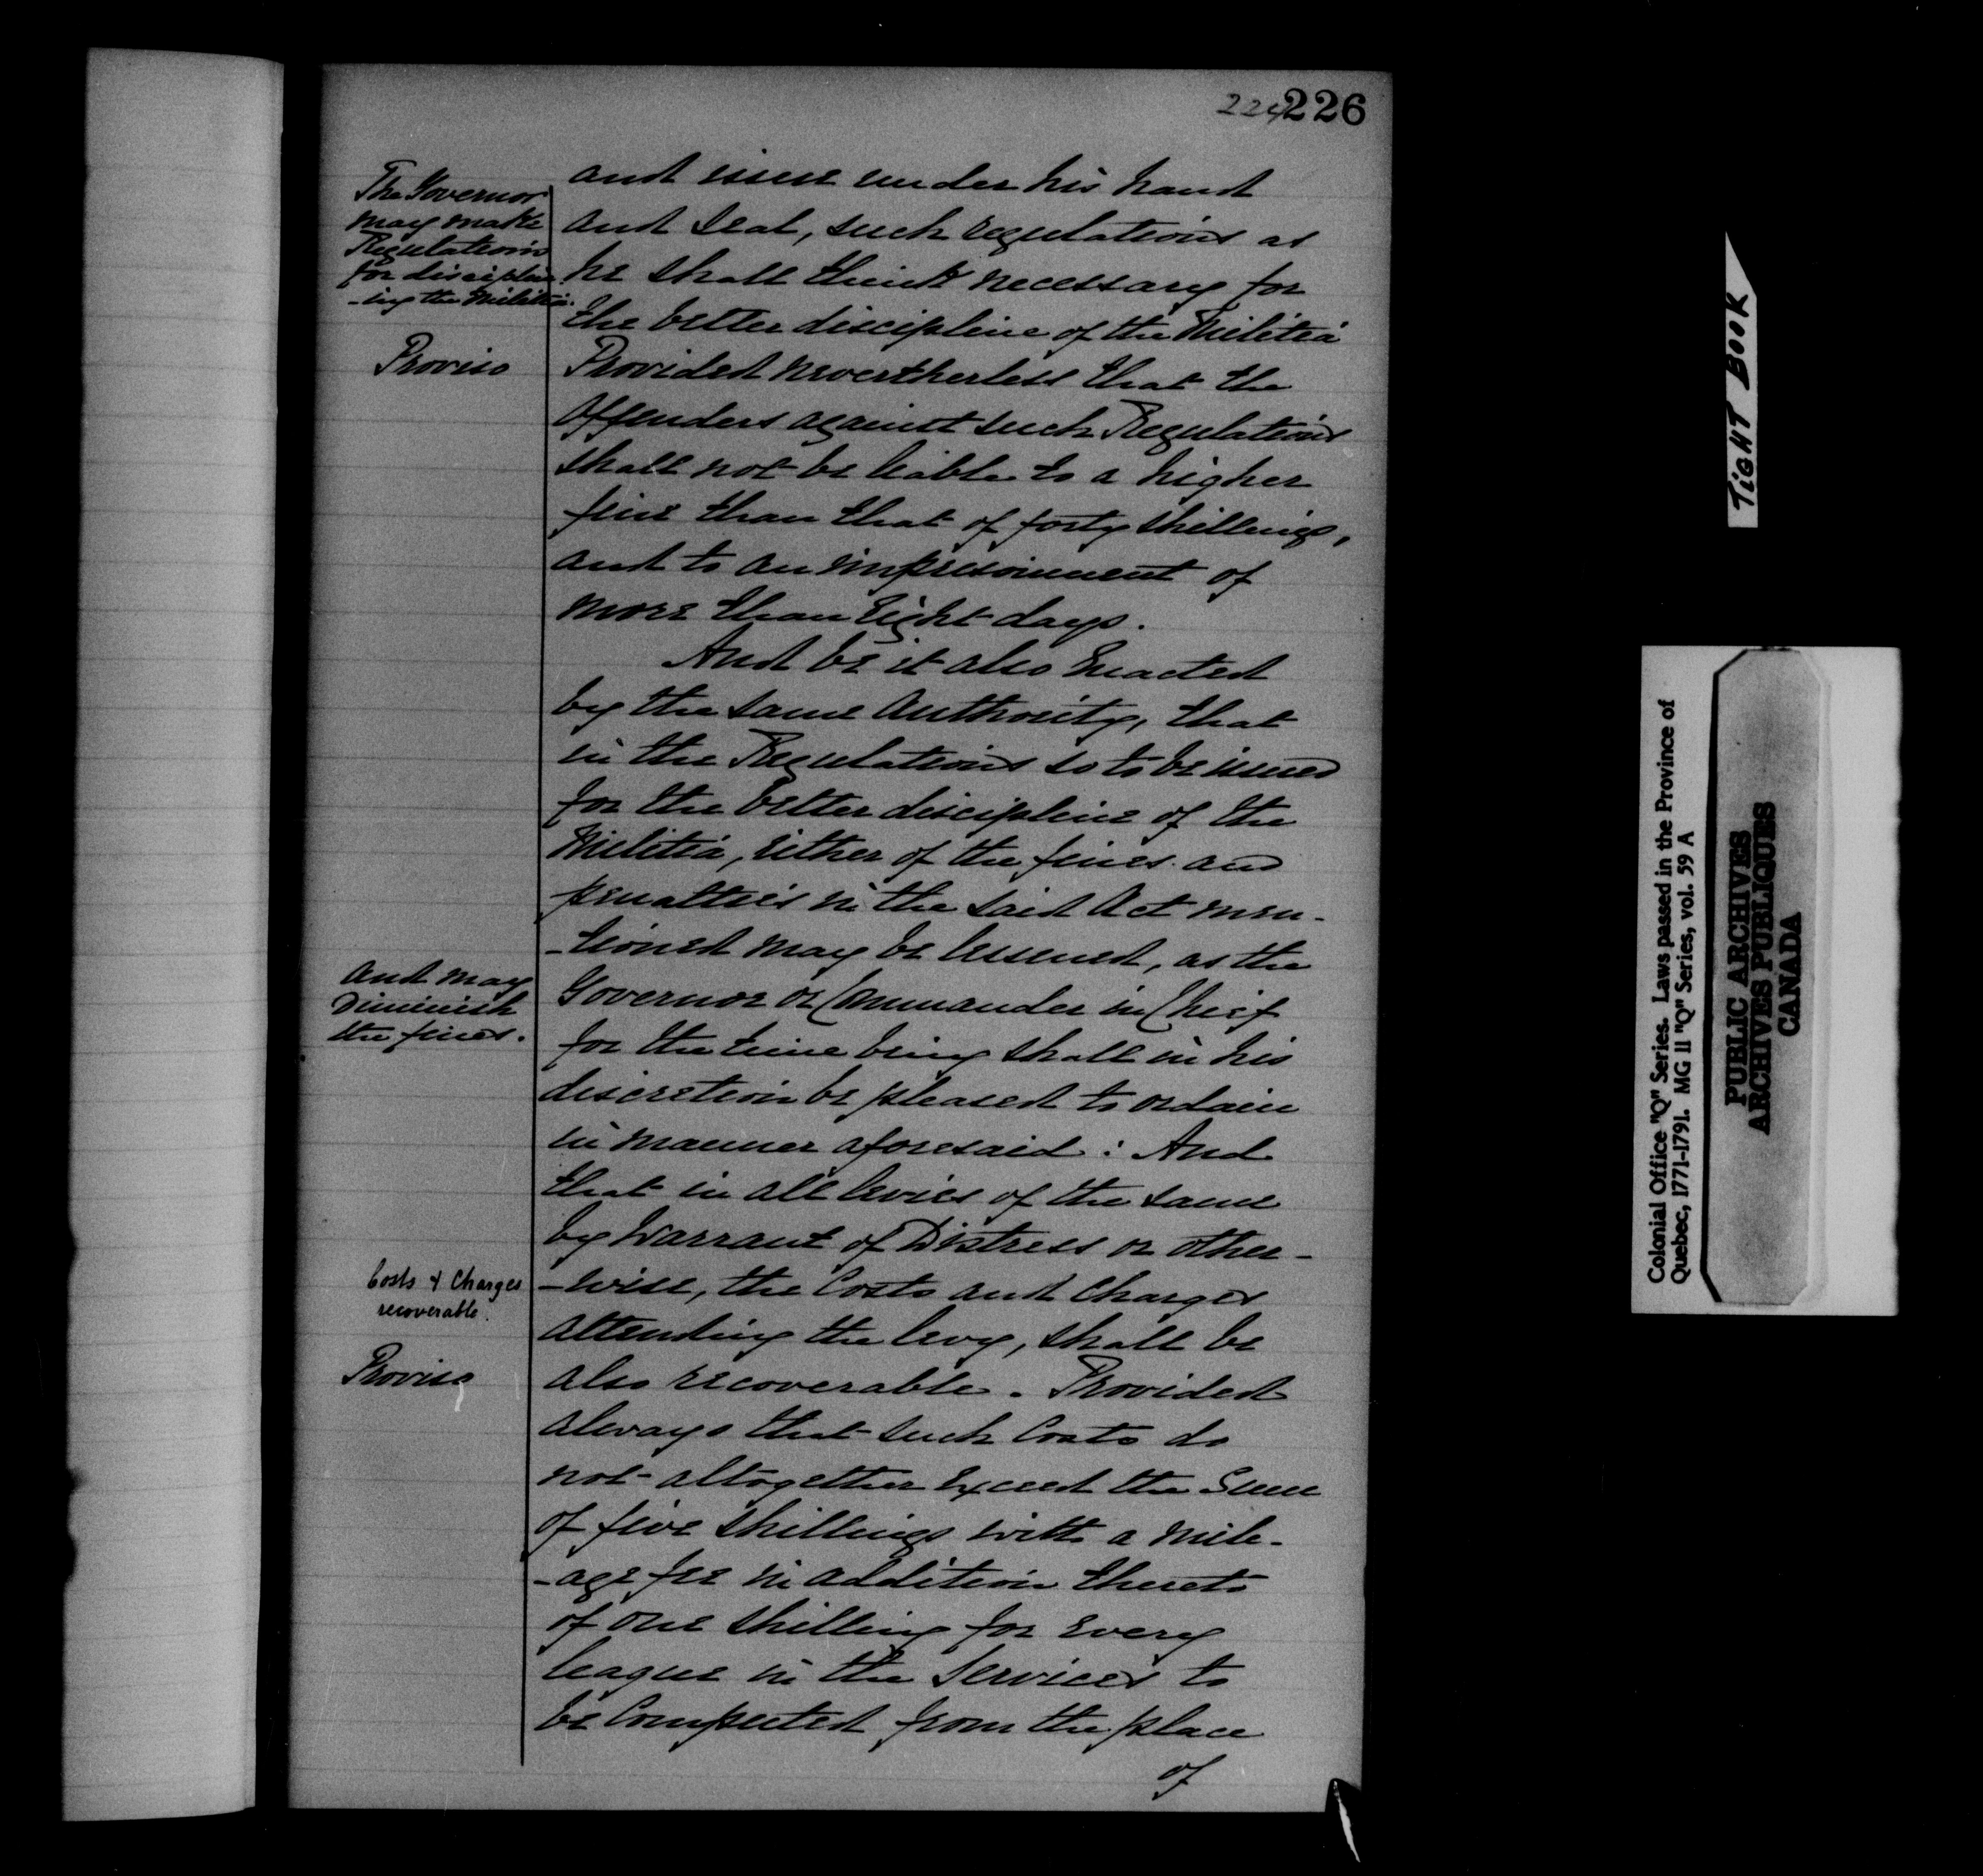 224 226
The Governor
may make
Regulations
for disciplin
-ing the Militia.
and issue under his hand
and Seal, such regulations as
he shall think necessary for
the better discipline of the Militia
Proviso
Provided nevertherless that the
offenders against such Regulations
shall not be liable to a higher
fine than that of forty shillings,
and to an imprisonment of
more than Eight days.
And be it also Enacted
by the same Authority, that
in the Regulations so to be issued
for the better discipline of the
Militia, Either of the fines and
penalties in the said Act men-
-tioned may be lessened, as the
And may
Diminish
the fines.
Governor or Commander in Chief
for the time being shall in his
discretion be pleased to ordain
in manner aforesaid : And
that in all levies of the same
by Warrant of Distress or other-
Costs & Charges
recoverable.
-wise, the Costs and Charges
attending the levy, shall be
Proviso
also recoverable. Provided
always that such Costs do
not altogether Exceed the Sum
of five Shillings with a mile-
-age fee in addition thereto
of one Shilling for Every
league in the Services to
be Computed from the place
of
TIGHT BOOK
Colonial Office "Q" Series. Laws passed in the Province of
Quebec, 1771-1791. MG 11 "Q" Series, vol. 59 A
PUBLIC ARCHIVES
ARCHIVES PUBLIQUES
CANADA